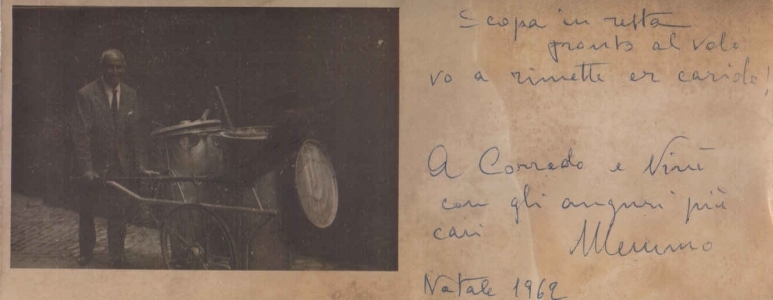 Scopa in resta
pronto al volo
vo a rimette er carido!
A Corrado e Ninì
con gli auguri più
cari Memmo
Natale 1962